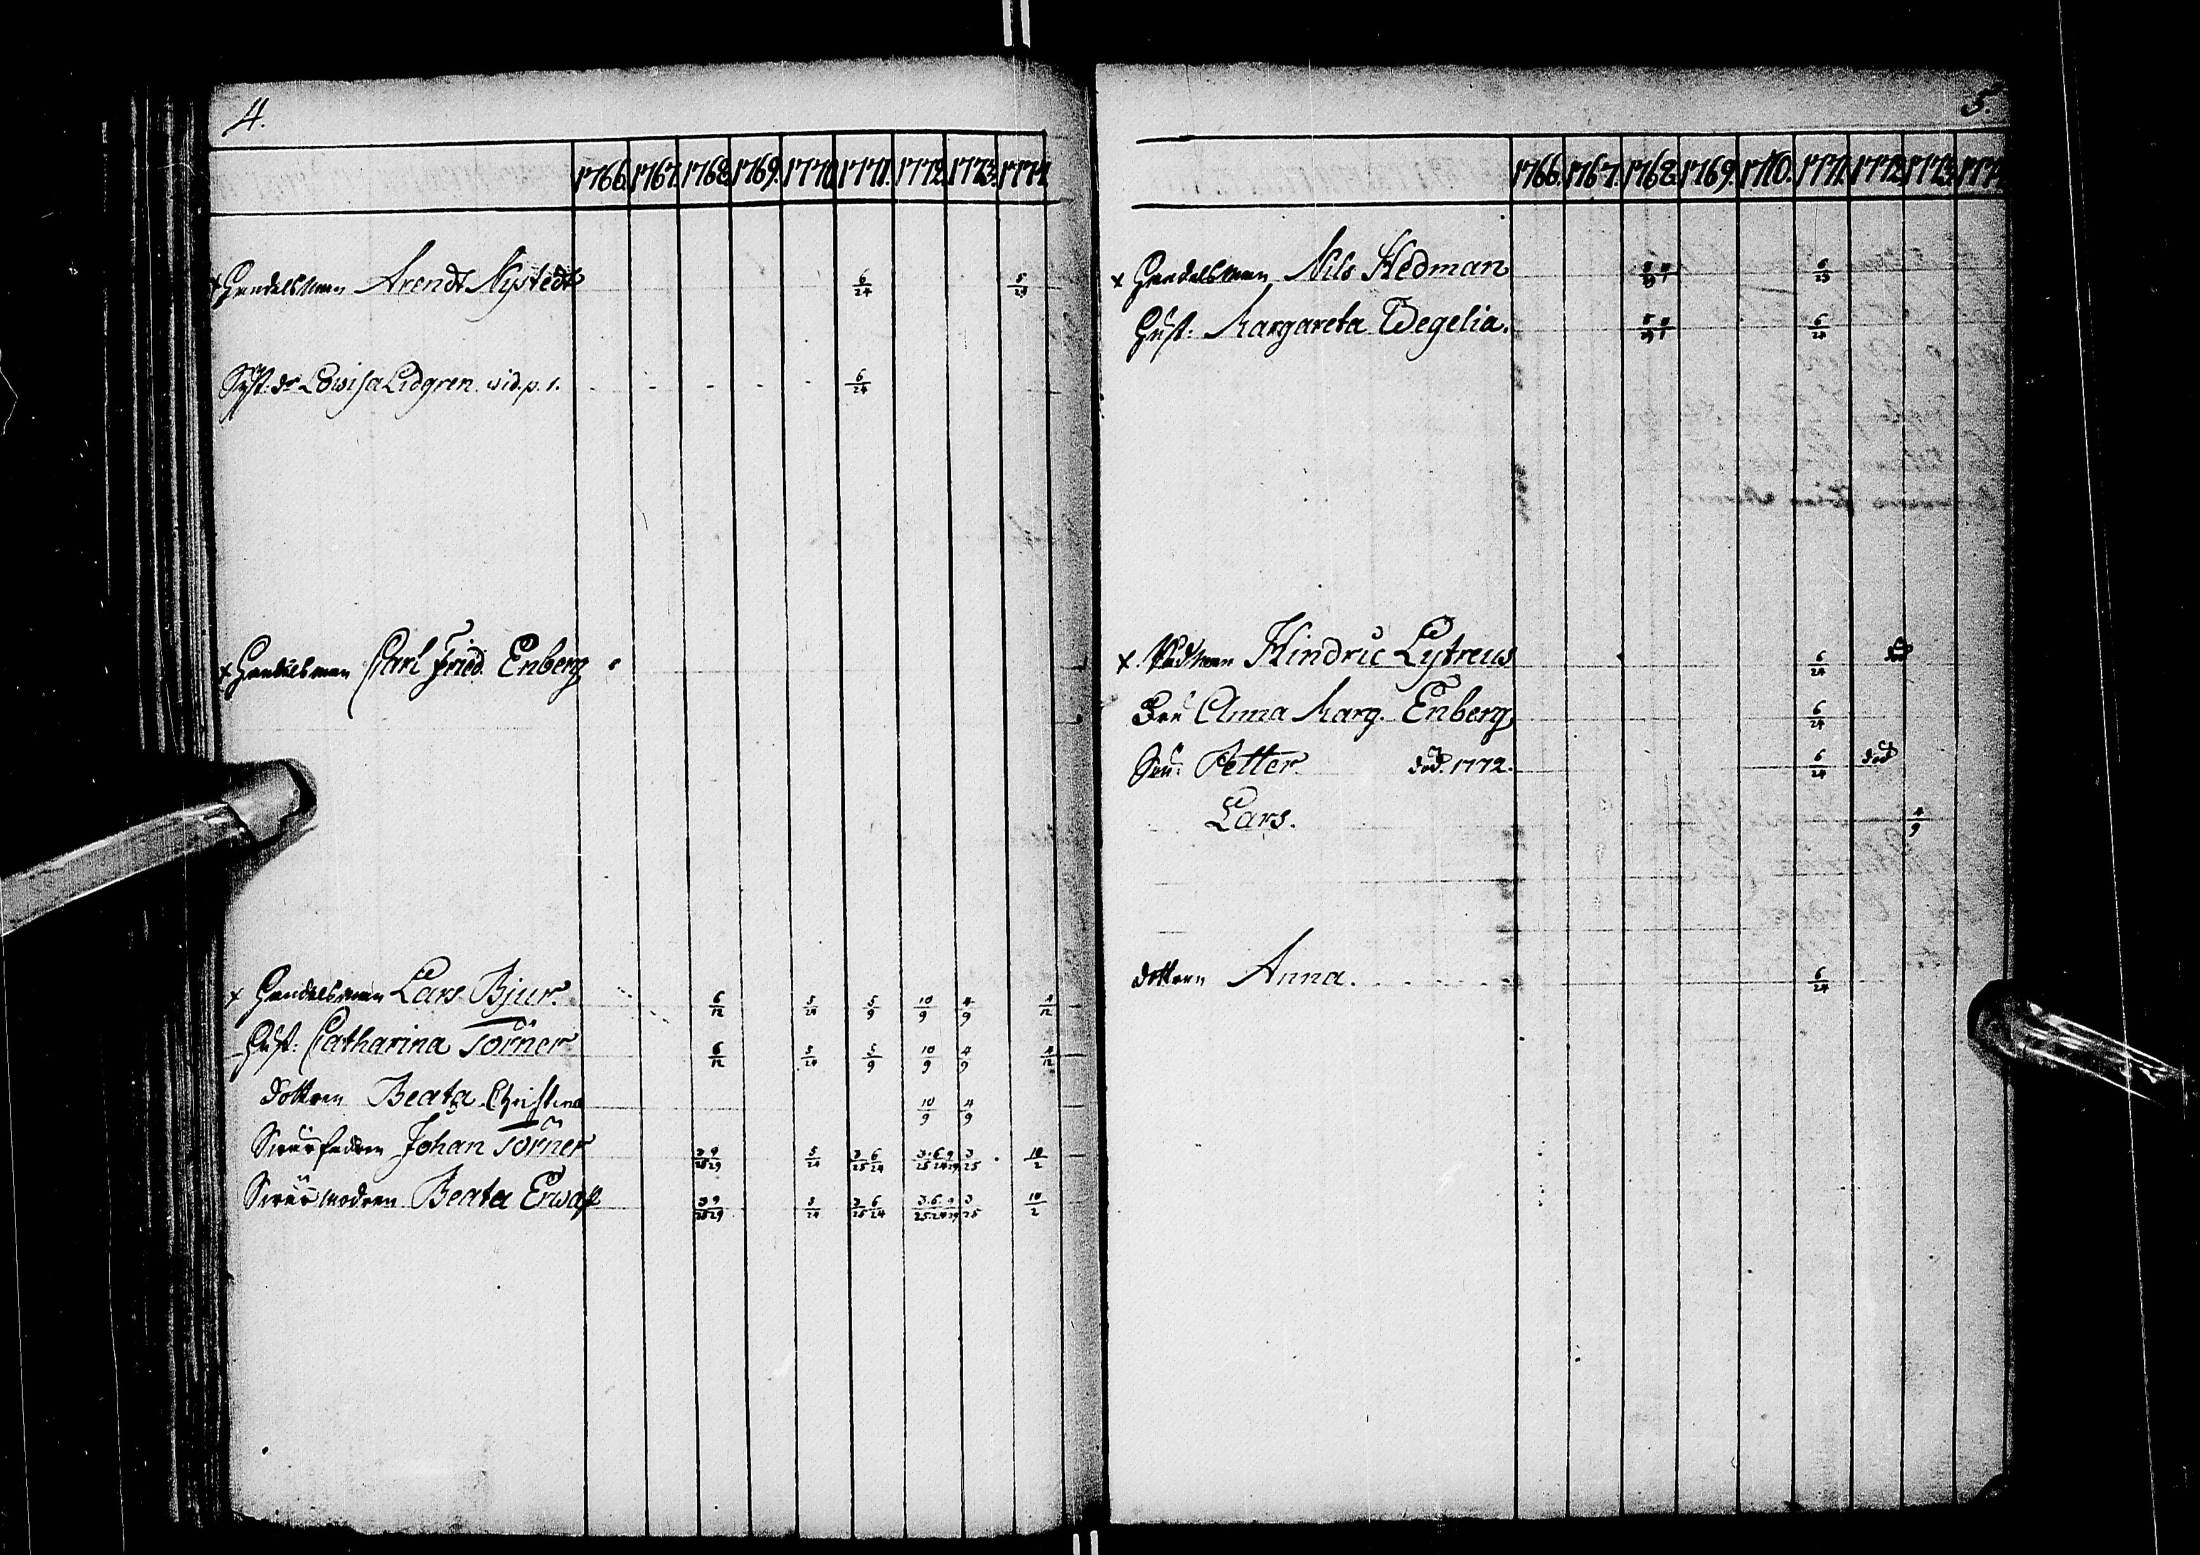 4.
1766. 1767. 1768. 1769. 1770. 1771. 1772. 1773. 1774
+ Handelsman Arendt Nystedt 6/24 5/24
Syst: dr Lowisa Lidgren vid. p. 1. 6/24
+ Handelsman Carl Fried. Enberg
+ Handelsman Lars Bjur. 6/12 5/24 5/9 10/9 4/9 4/12
Hust: Catharina Törner 6/12 5/24 5/9 10/9 4/9 4/12
dottren Beata Christina 10/9 4/9
Swärfadren Johan Törner 3/25 9/29 5/24 3/25 6/24 3/25 6/24 9/29 3/25 10/2
Swärmodren Beata Erwast 3/25 9/29 5/24 3/25 6/24 3/25 6/24 9/29 3/25 10/2
5.
1766. 1767. 1768. 1769. 1770. 1771. 1772. 1773. 1774
+ Handelsman Nils Hedman 6/23
Hust: Margareta Wegelia. 6/24
+ Rådman Hindric Lytreus 6/24 död
Fru Anna Marg. Enberg 6/24
Son: Petter död. 1772. 6/24 död
Lars. 4/9
dottren Anna. 6/24